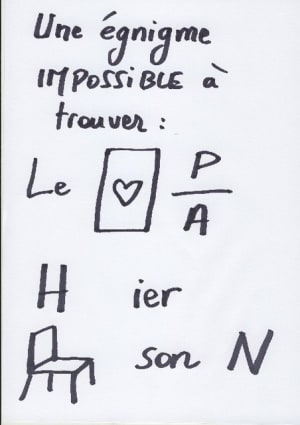 Une égnigme
IMPOSSIBLE à
trouver :
Le P
A
H ier
son N